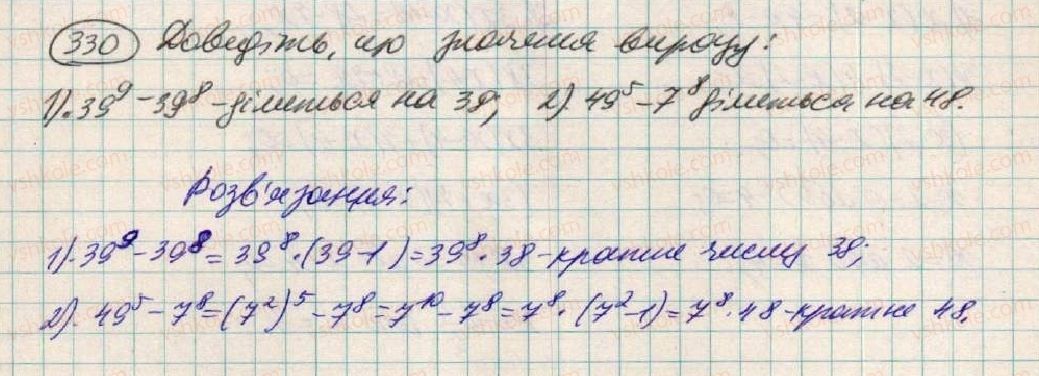 330 Доведіть, що значення виразу:
1). 39⁹ - 39⁸ - ділиться на 38; 2) 49⁵ - 7⁸ ділиться на 48.
Розв'язання:
1). 39⁹ - 39⁸ = 39⁸ · (39 - 1) = 39⁸ · 38 - кратне числу 38;
2). 49⁵ - 7⁸ = (7²)⁵ - 7⁸ = 7¹⁰ - 7⁸ = 7⁸ · (7² - 1) = 7⁸ · 48 - кратне 48.